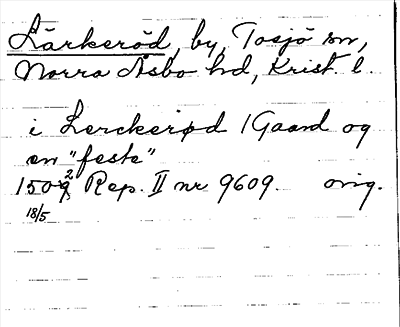 Lärkeröd, by, Tosjö sn,
Norra Åsbo hd, Krist. l.
i Lerckerød 1 Gaard og
en "feste"
1509 2 Rep. II nr 9609. orig.
18/5